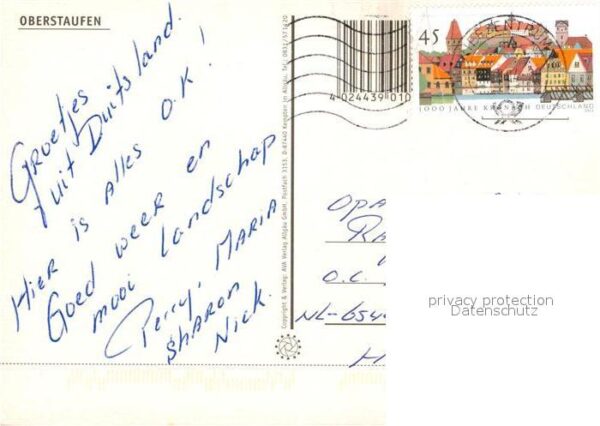 OBERSTAUFEN
Groetjes
uit Duitsland.
Hier is alles O.K!
Goed weer en
mooi landschap
Perry, Maria
Sharon
Nick.
Copyright & Verlag: AVA Verlag Allgäu GmbH, Postfach 3153, D-87440 Kempten im Allgäu, Tel. 0831/571420
4-024439 010
45
1000 JAHRE KRONACH DEUTSCHLAND
Opa
O.C.
NL-654
privacy protection
Datenschutz